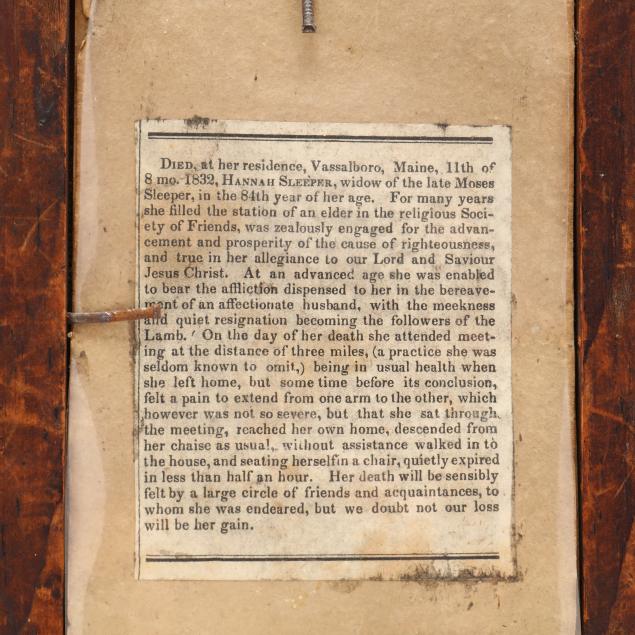 DIED, at her residence, Vassalboro, Maine, 11th of
8 mo. 1832, HANNAH SLEEPER, widow of the late Moses
Sleeper, in the 84th year of her age. For many years
she filled the station of an elder in the religious Soci-
ety of Friends, was zealously engaged for the advan-
cement and prosperity of the cause of righteousness,
and true in her allegiance to our Lord and Saviour
Jesus Christ. At an advanced age she was enabled
to bear the affliction dispensed to her in the bereave-
ment of an affectionate husband, with the meekness
and quiet resignation becoming the followers of the
Lamb. On the day of her death she attended meet-
ing at the distance of three miles, (a practice she was
seldom known to omit,) being in usual health when
she left home, but some time before its conclusion,
felt a pain to extend from one arm to the other, which
however was not so severe, but that she sat through
the meeting, reached her own home, descended from
her chaise as usual, without assistance walked in to
the house, and seating herself in a chair, quietly expired
in less than half an hour. Her death will be sensibly
felt by a large circle of friends and acquaintances, to
whom she was endeared, but we doubt not our loss
will be her gain.